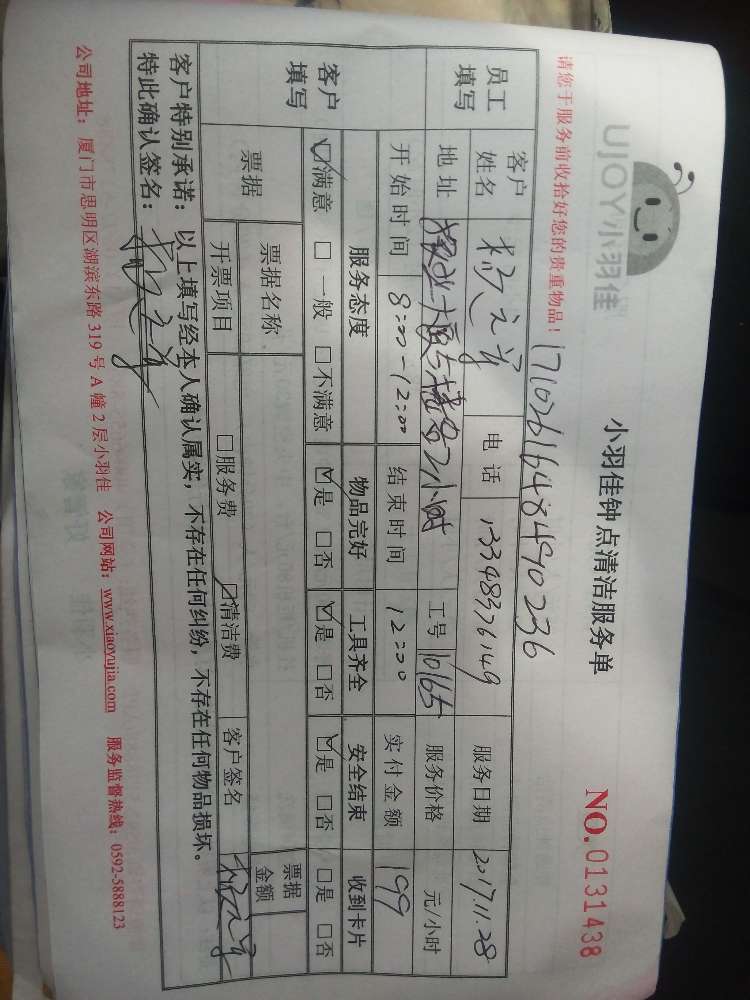 UJOY小羽佳
小羽佳钟点清洁服务单
NO.0131438
请您于服务前收拾好您的贵重物品！
17102616484910236
员工填写 客户姓名 电话 13348376149 服务日期 2017.11.28
地址 2小时 工号 10165 服务价格 元/小时
开始时间 8:00-12:00 结束时间 12:00 实付金额 199
客户填写 服务态度 物品完好 工具齐全 安全结束 收到卡片
☑满意 □一般 □不满意 ☑是 □否 ☑是 □否 ☑是 □否 □是 □否
票据 票据名称 票据金额
开票项目 □服务费 ☑清洁费 客户签名
客户特别承诺：以上填写经本人确认属实，不存在任何纠纷，不存在任何物品损坏。
特此确认签名：
公司地址：厦门市思明区湖滨东路319号A幢2层小羽佳 公司网站：www.xiaoyujia.com 服务监督热线：0592-5888123